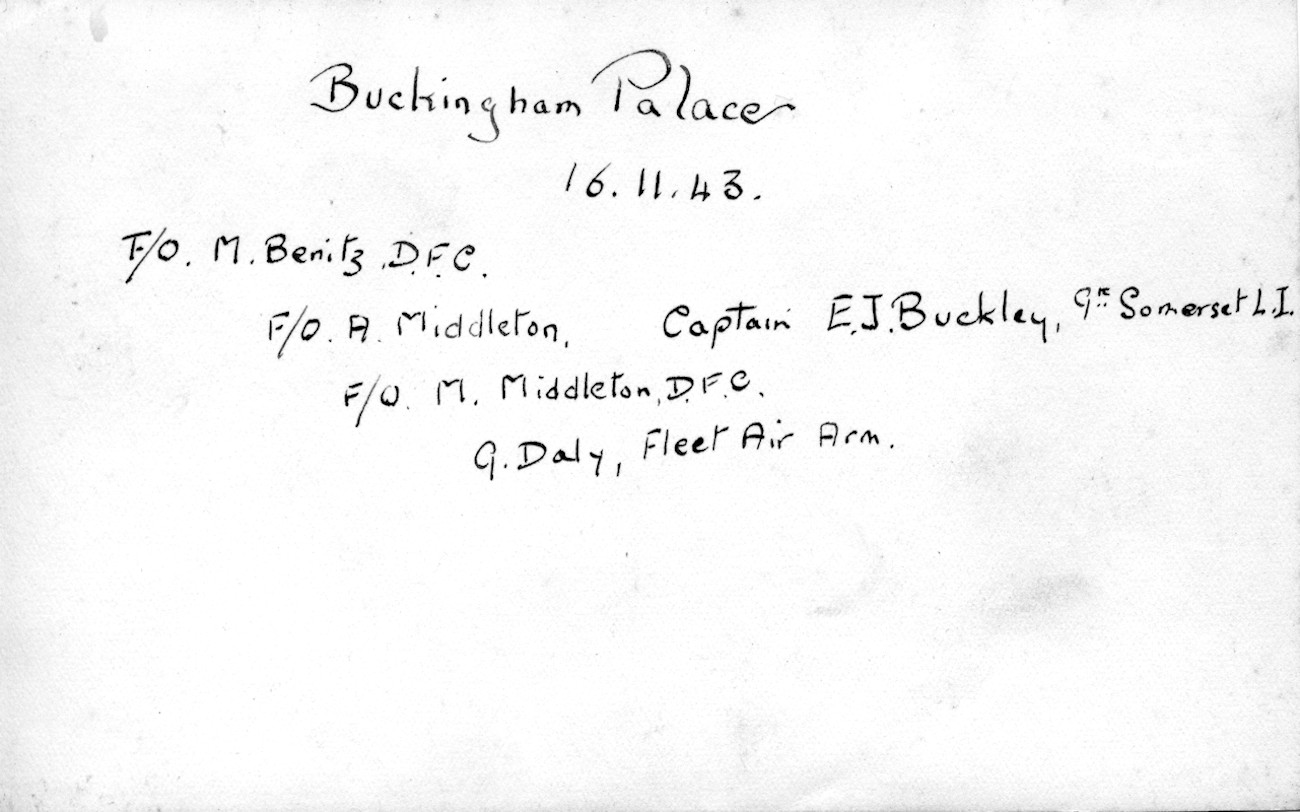 Buckingham Palace
16.11.43.
F/O. M. Benitz D.F.C.
F/O. A. Middleton, Captain E.J. Buckley, 9th Somerset L.I.
F/O. M. Middleton, D.F.C.
G. Daly, Fleet Air Arm.